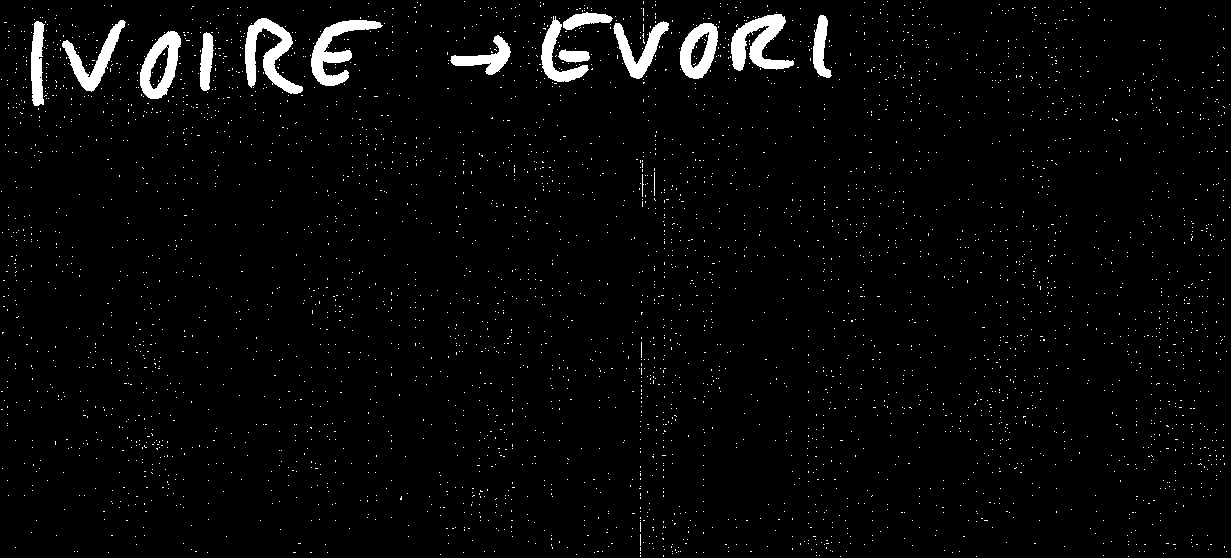 IVOIRE → EVORI